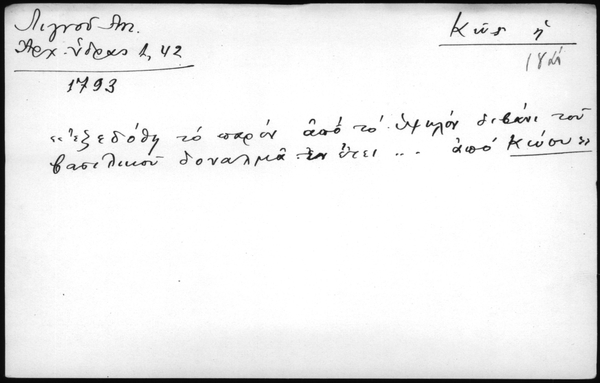 Λιγνοῦ Ἀν.
Ἀρχ. Ὕδρας 1, 42
1793
Κῶς ἡ
«Ἐξεδόθη τό παρόν ἀπό τό ὑψηλόν διβάνι τοῦ
βασιλικοῦ δοναλμᾶ ἐν ἔτει ... ἀπό Κώου»